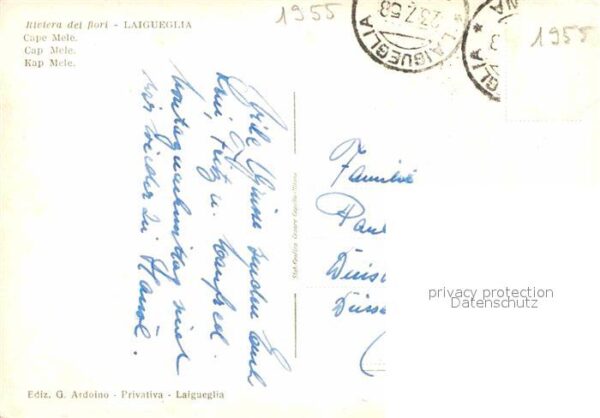 1955
Riviera dei fiori - LAIGUEGLIA
Cape Mele.
Cap Mele.
Kap Mele.
LAIGUEGLIA
23.7.58
1955
Viele Grüsse senden Euch
Fritz u. Manfred.
montagnachmittag sind
wir wieder zu Hause.
Familie
Paul
Duis
Düsse
privacy protection
Datenschutz
Ediz. G. Ardoino - Privativa - Laigueglia